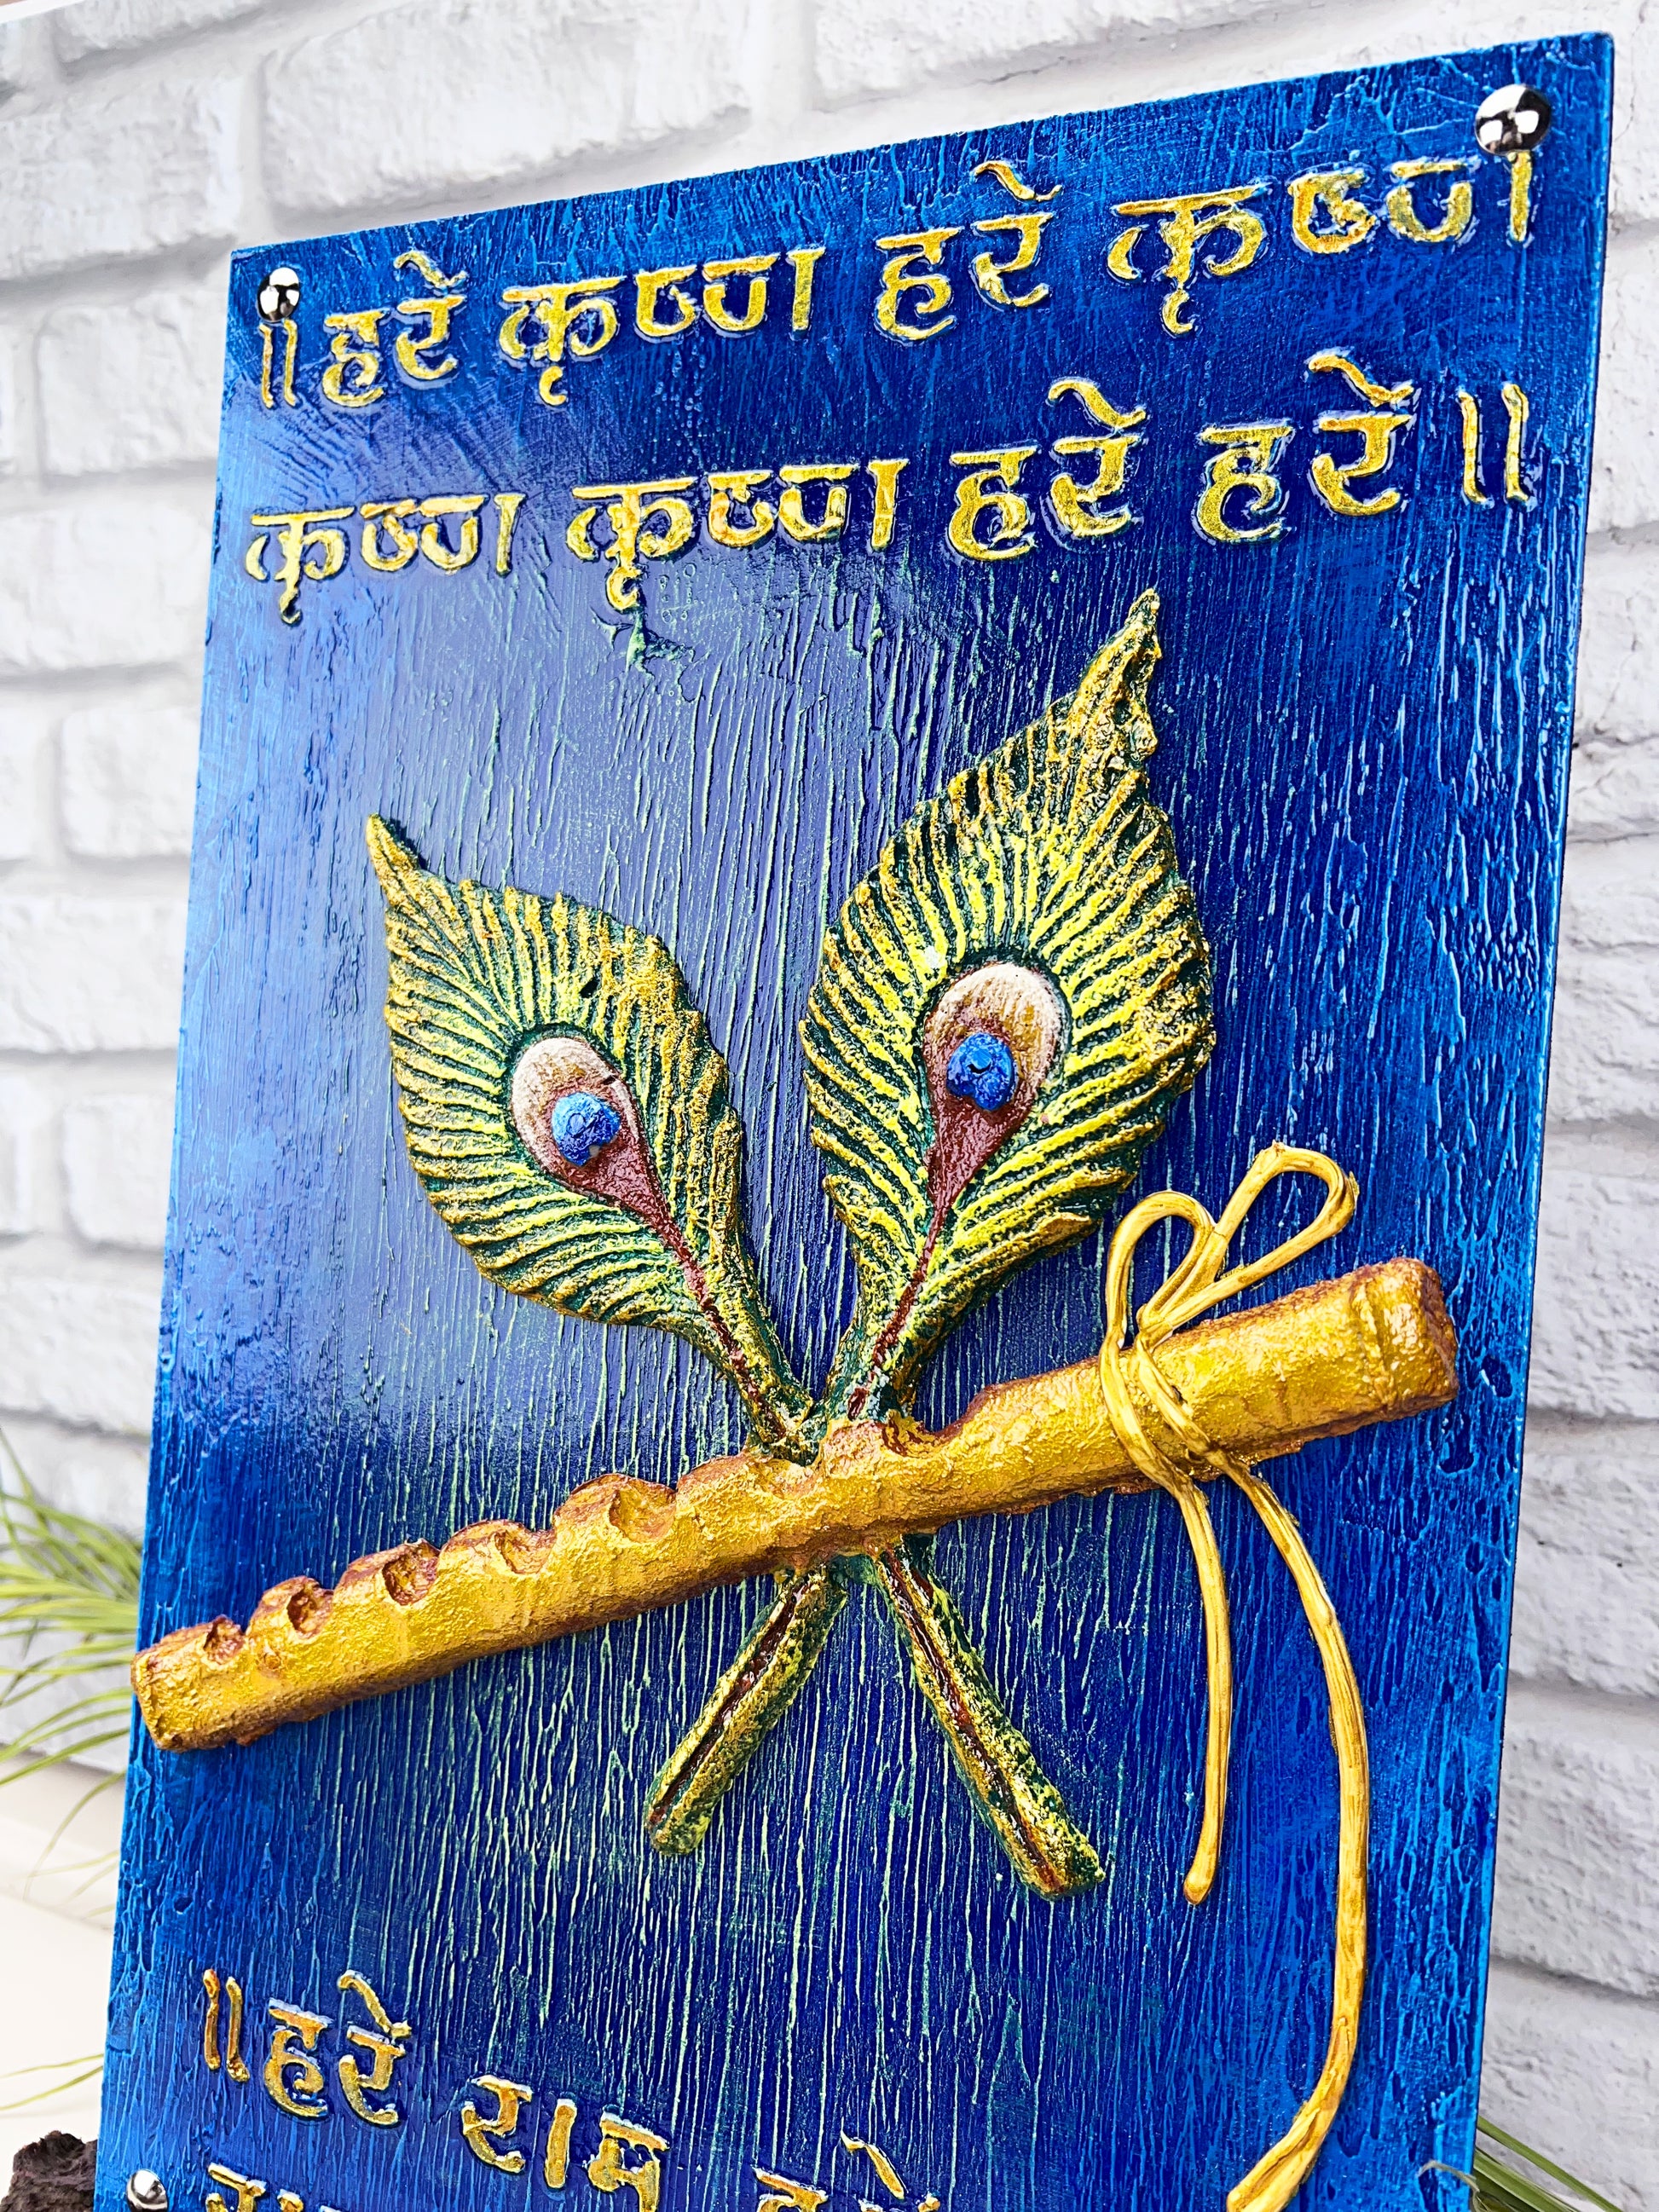 ॥ हरे कृष्ण हरे कृष्ण
कृष्ण कृष्ण हरे हरे ॥
॥ हरे राम हरे